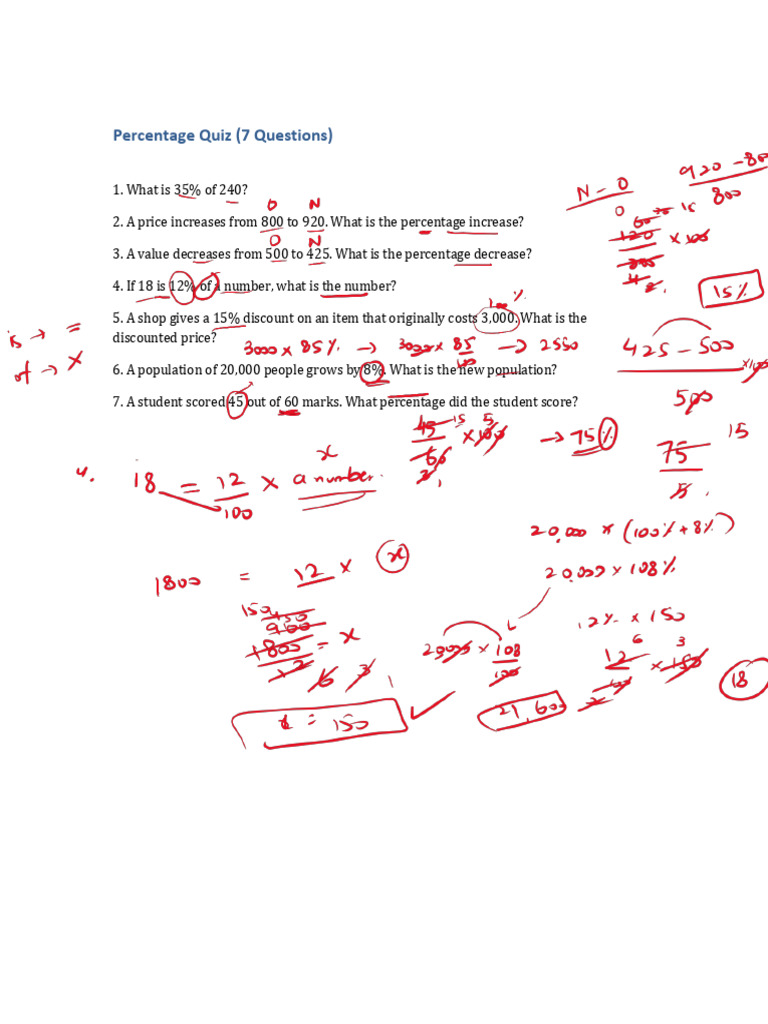 Percentage Quiz (7 Questions)
920 - 800
800
N - O
O
1. What is 35% of 240?
O N
2. A price increases from 800 to 920. What is the percentage increase?
120 × 100
15%
O N
3. A value decreases from 500 to 425. What is the percentage decrease?
4. If 18 is 12% of a number, what is the number?
100%
5. A shop gives a 15% discount on an item that originally costs 3,000. What is the
discounted price?
is → =
of → ×
3000 × 85% → 3000 × 85 → 2550
100
425 - 500
×100
500
6. A population of 20,000 people grows by 8%. What is the new population?
7. A student scored 45 out of 60 marks. What percentage did the student score?
45 15 × 100 5 → 75%
60
3,
75 15
5
4. 18 = 12 × a number. x
100
20,000 × (100% + 8%)
20,000 × 108%
1800 = 12 × x
150 450
900
1800 = x
12 6 3
x = 150
20000 × 108
100
21,600
12% × 150
6 3
12 × 150
100
2
18